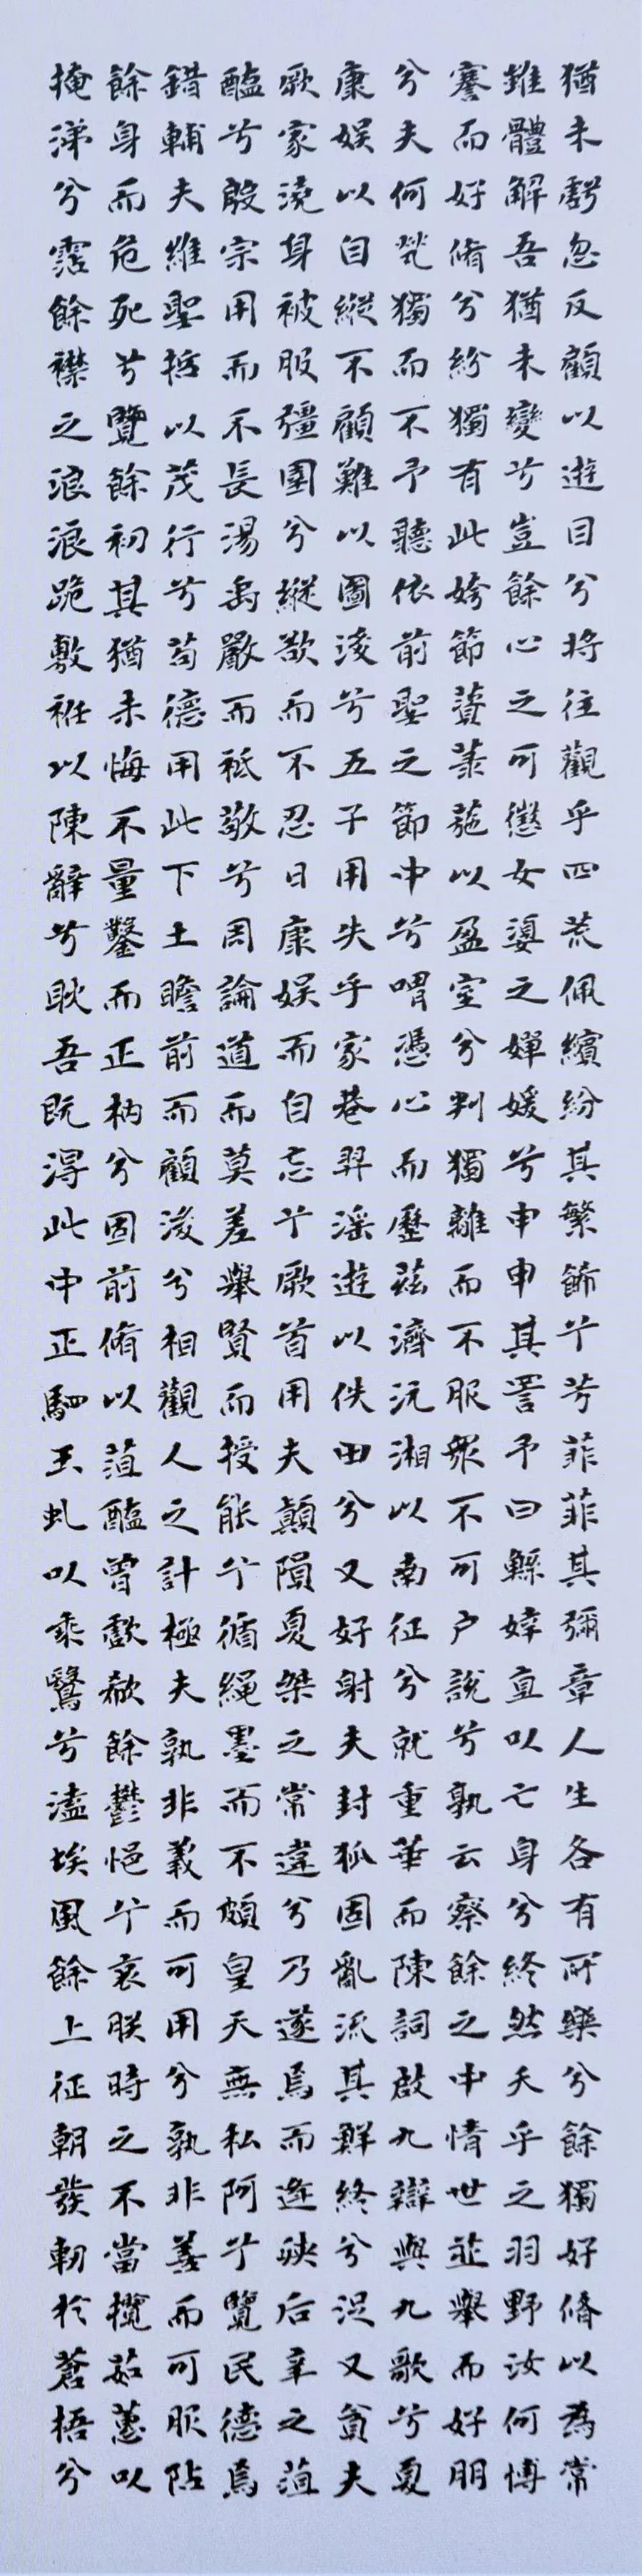 猶未虧忽反顧以遊目兮將往觀乎四荒佩繽紛其繁飾兮芳菲菲其彌章人生各有所樂兮餘獨好脩以為常
雖體解吾猶未變兮豈餘心之可懲女嬃之嬋媛兮申申其詈予曰鯀婞直以亡身兮終然夭乎之羽野汝何博
謇而好脩兮紛獨有此姱節薋菉葹以盈室兮判獨離而不服眾不可戶說兮孰云察餘之中情世並舉而好朋
兮夫何煢獨而不予聽依前聖之節中兮喟憑心而歷茲濟沅湘以南征兮就重華而陳詞啟九辯與九歌兮夏
康娛以自縱不顧難以圖後兮五子用失乎家巷羿淫遊以佚田兮又好射夫封狐固亂流其鮮終兮浞又貪夫
厥家澆身被服彊圉兮縱欲而不忍日康娛而自忘兮厥首用夫顛隕夏桀之常違兮乃遂焉而逢殃后辛之菹
醢兮殷宗用而不長湯禹嚴而祗敬兮周論道而莫差舉賢而授能兮循繩墨而不頗皇天無私阿兮覽民德焉
錯輔夫維聖哲以茂行兮苟德用此下土瞻前而顧後兮相觀人之計極夫孰非義而可用兮孰非善而可服阽
餘身而危死兮覽餘初其猶未悔不量鑿而正枘兮固前脩以菹醢曾歔欷餘鬱悒兮哀朕時之不當攬茹蕙以
掩涕兮霑餘襟之浪浪跪敷衽以陳辭兮耿吾既得此中正駟玉虬以乘鷖兮溘埃風餘上征朝發軔於蒼梧兮